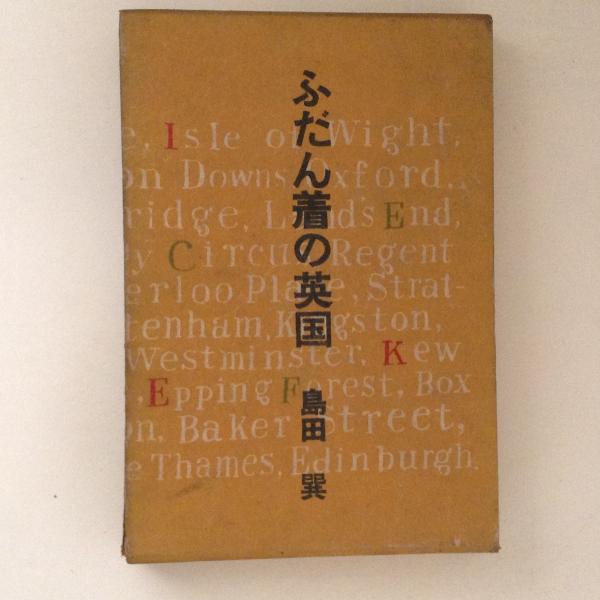 ふだん着の英国
島田 巽
e, Isle of Wight,
on Downs, Oxford,
ridge, Land's End,
y Circus, Regent
erloo Place, Strat-
tenham, Kingston,
Westminster, Kew
, Epping Forest, Box
on, Baker Street,
e Thames, Edinburgh.